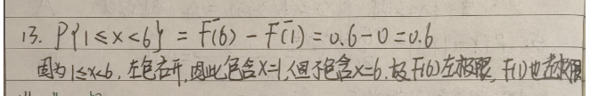 13. P{1≤x<6} = F(6⁻) - F(1⁻) = 0.6 - 0 = 0.6
因为1≤x<6, 左包右开, 因此包含x=1, 但不包含x=6, 故F(6)左极限, F(1)也左极限